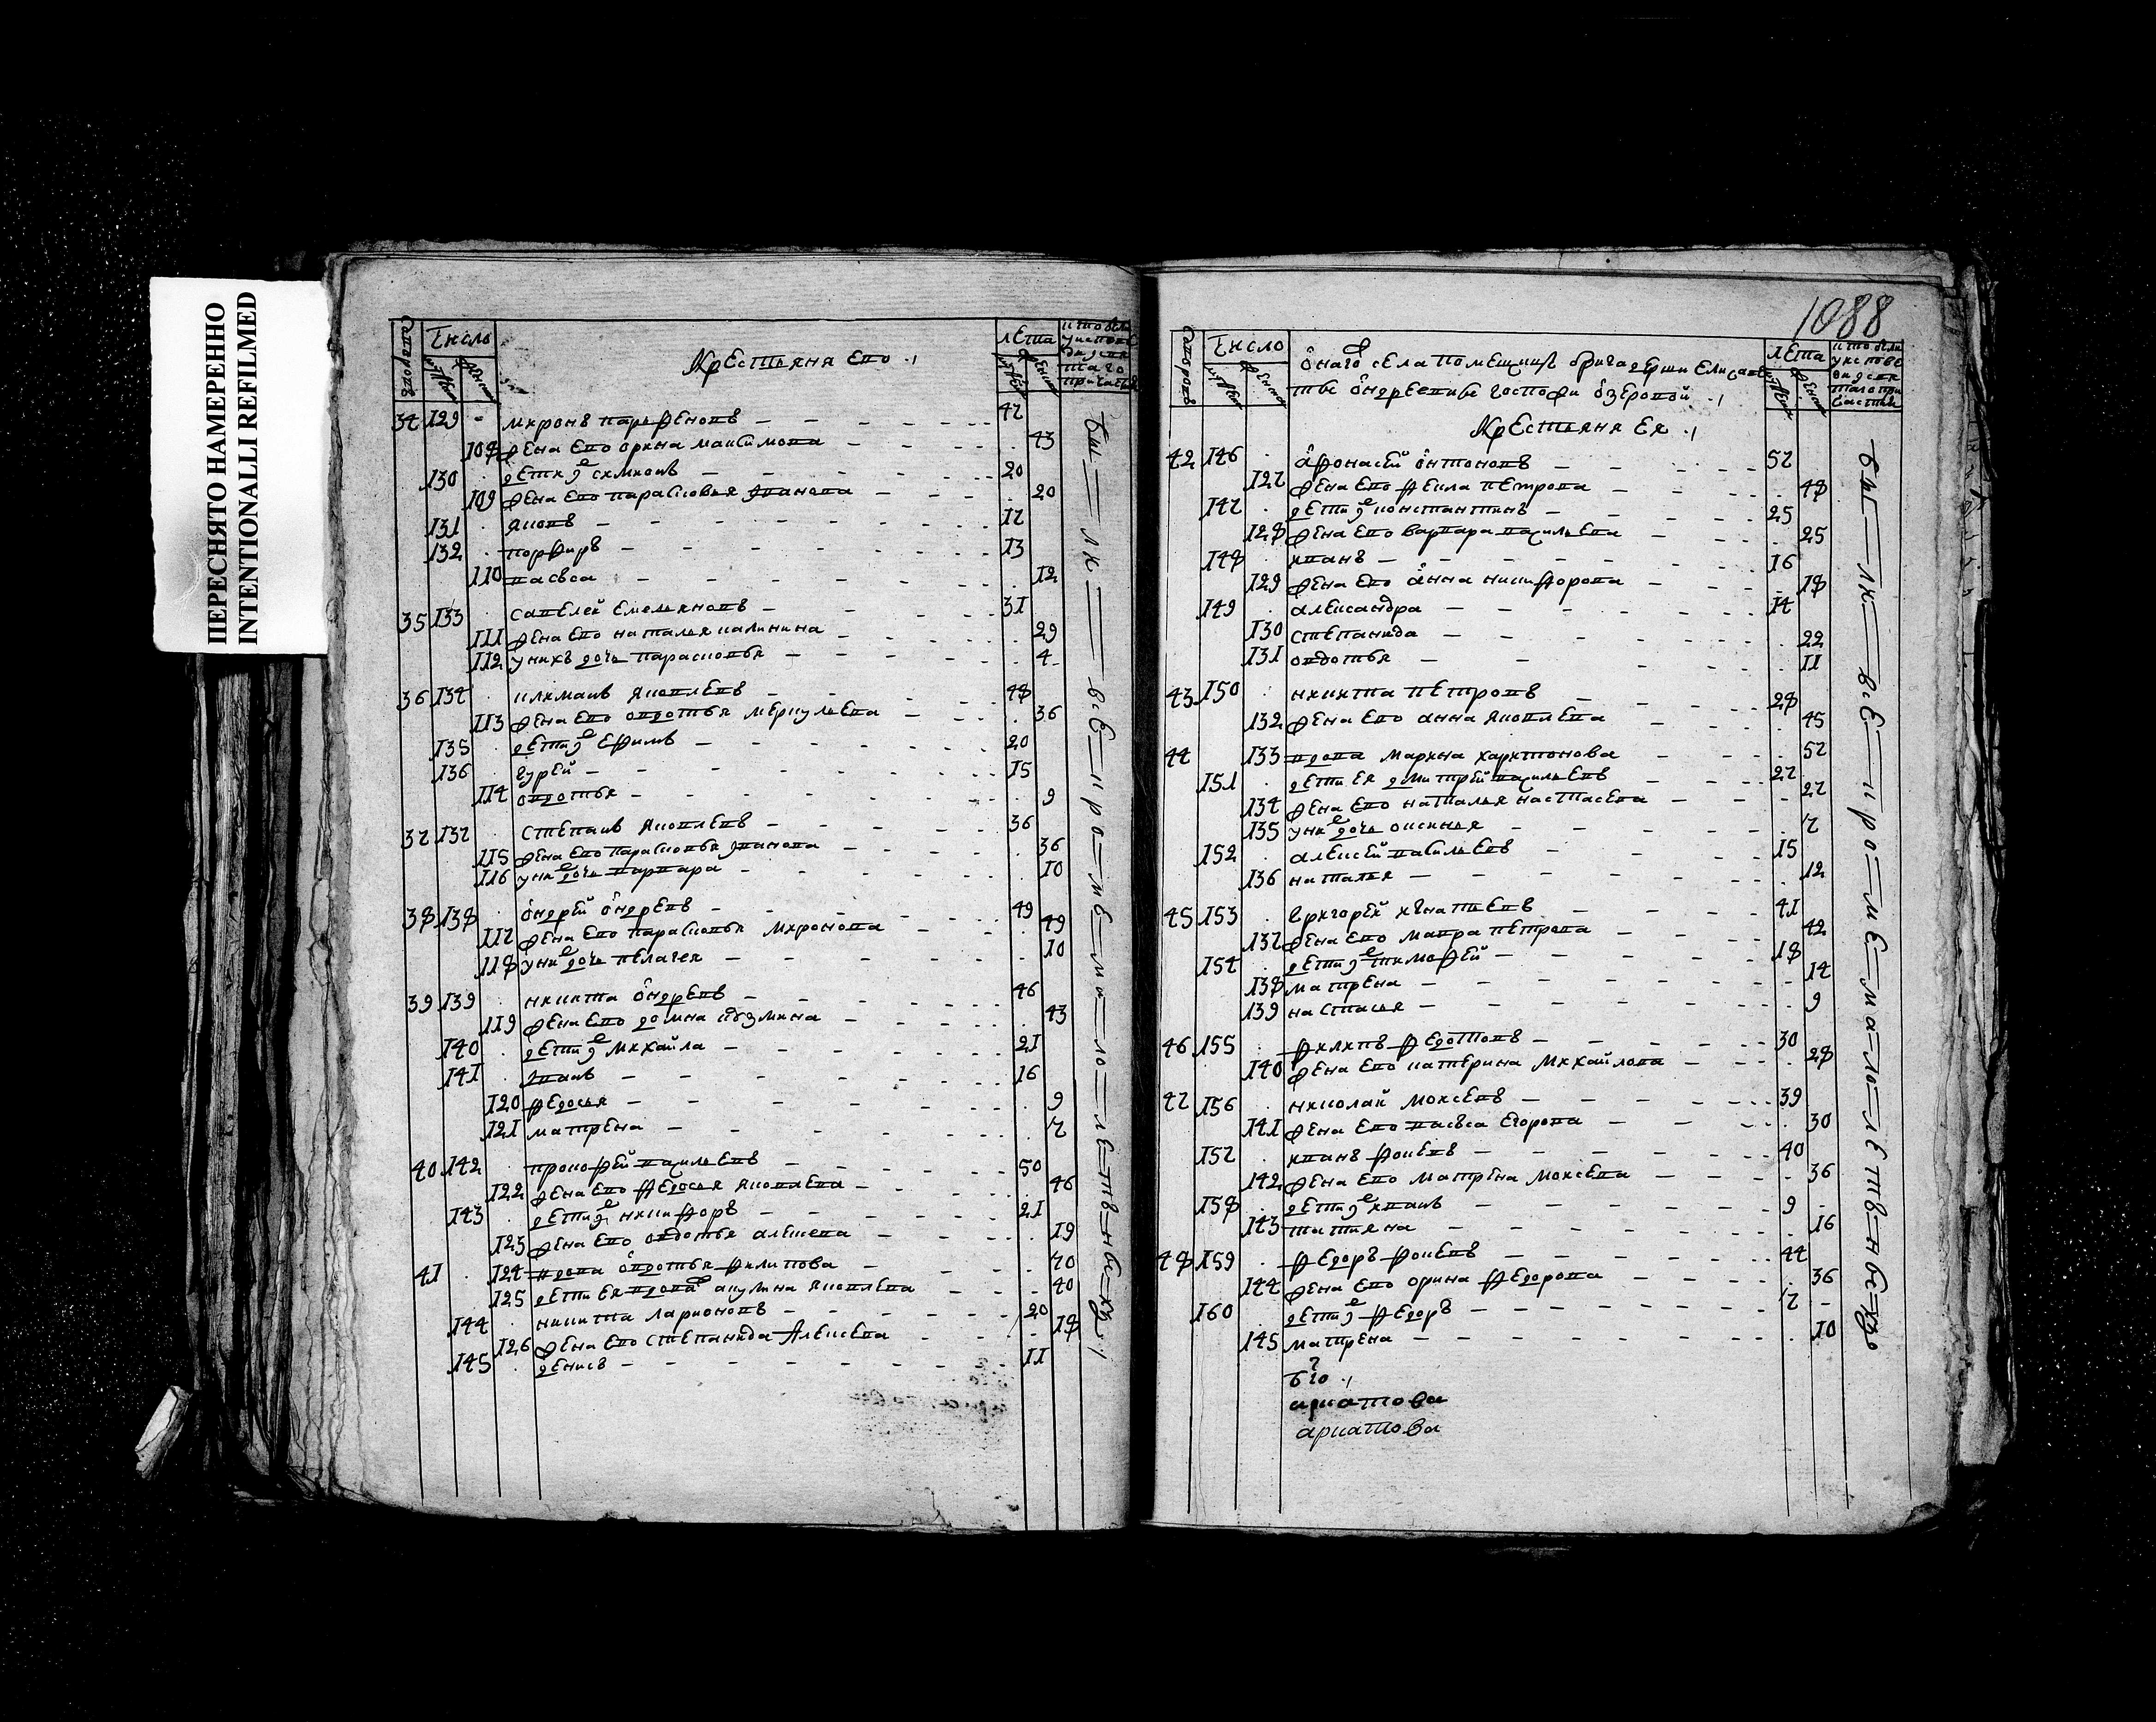 ПЕРЕСНЯТО НАМЕРЕННО
INTENTIONALLI REFILMED
число
лета
крестьяня ево
34 129 миронъ парѳеновъ 47
108 жена ево орина максимова 43
130 дети ихъ 20
109 жена ево парасковья иванова 20
131 яковъ 17
132 порѳиръ 13
110 васса 12
35 133 савелей емельяновъ 31
111 жена ево наталья калинина 29
112 у нихъ дочь парасковья 4
36 134 климанъ яковлевъ 48
113 жена ево овдотья меркульева 36
135 дети ихъ еѳимъ 20
136 гурей 15
114 овдотья 9
37 137 степанъ яковлевъ 36
115 жена ево парасковья иванова 36
116 у них дочь варвара 10
38 138 ондрей ондревъ 49
117 жена ево парасковья миронова 49
118 у них дочь пелагея 10
39 139 никита ондревъ 46
119 жена ево домна кузмина 43
140 дети ихъ михайла 21
141 иванъ 16
120 ѳедосья 9
121 матрена 7
40 142 прокоѳей василевъ 50
122 жена ево ѳедосья яковлева 46
143 дети ихъ никиѳоръ 21
123 жена ево овдотья алексева 19
41 124 вдова овдотья ѳилипова 70
125 дети ея вдова акулина яковлева 40
144 никита ларионовъ 20
126 жена ево степанида алексева 18
145 денисъ 11
бы ли все кро ме ма ло лет ны хъ
1088
число
лета
онаго села помещицы бригадерши елисаве
ты ондреевны госпожи озеровой
крестьяня ея
42 146 аѳонасей онтоновъ 57
127 жена ево ѳекла петрова 48
147 дети ихъ константинъ 25
128 жена ево варвара василева 25
148 иванъ 16
129 жена ево анна никиѳорова 18
149 александра 14
130 степанида 22
131 овдотья 11
43 150 никита петровъ 28
132 жена ево анна яковлева 45
44 133 вдова марина харитонова 57
151 дети ея дмитрей василевъ 27
134 жена ево наталья настасева 27
135 у них дочь оксинья 7
152 алексей василевъ 15
136 наталья 12
45 153 григорей игнатевъ 41
137 жена ево мавра петрова 42
154 дети ихъ тимоѳей 18
138 матрена 14
139 настасья 9
46 155 ѳилипъ ѳедотовъ 30
140 жена ево катерина михайлова 28
47 156 николай мокеевъ 39
141 жена ево васса егорова 30
157 иванъ ѳокевъ 40
142 жена ево матрена мокеева 36
158 дети ихъ иванъ 9
143 татияна 16
48 159 ѳедоръ ѳокевъ 44
144 жена ево орина ѳедорова 36
160 дети ихъ ѳедоръ 7
145 матрена 10
аркатова
аркатова
бы ли все кро ме ма ло лет ны хъ